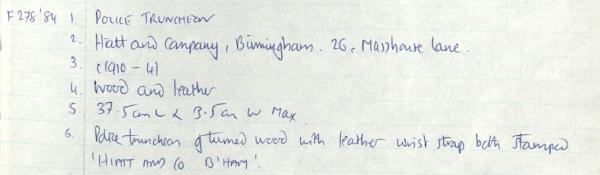 F278'84 1 POLICE TRUNCHEON
2. Hiatt and Company, Birmingham. 26, Masshouse lane.
3. c1910 - 41
4. Wood and leather
5 37.5cm L x 3.5cm W Max
6. Police truncheon of turned wood with leather wrist strap both stamped
'HIATT AND CO B'HAM'.